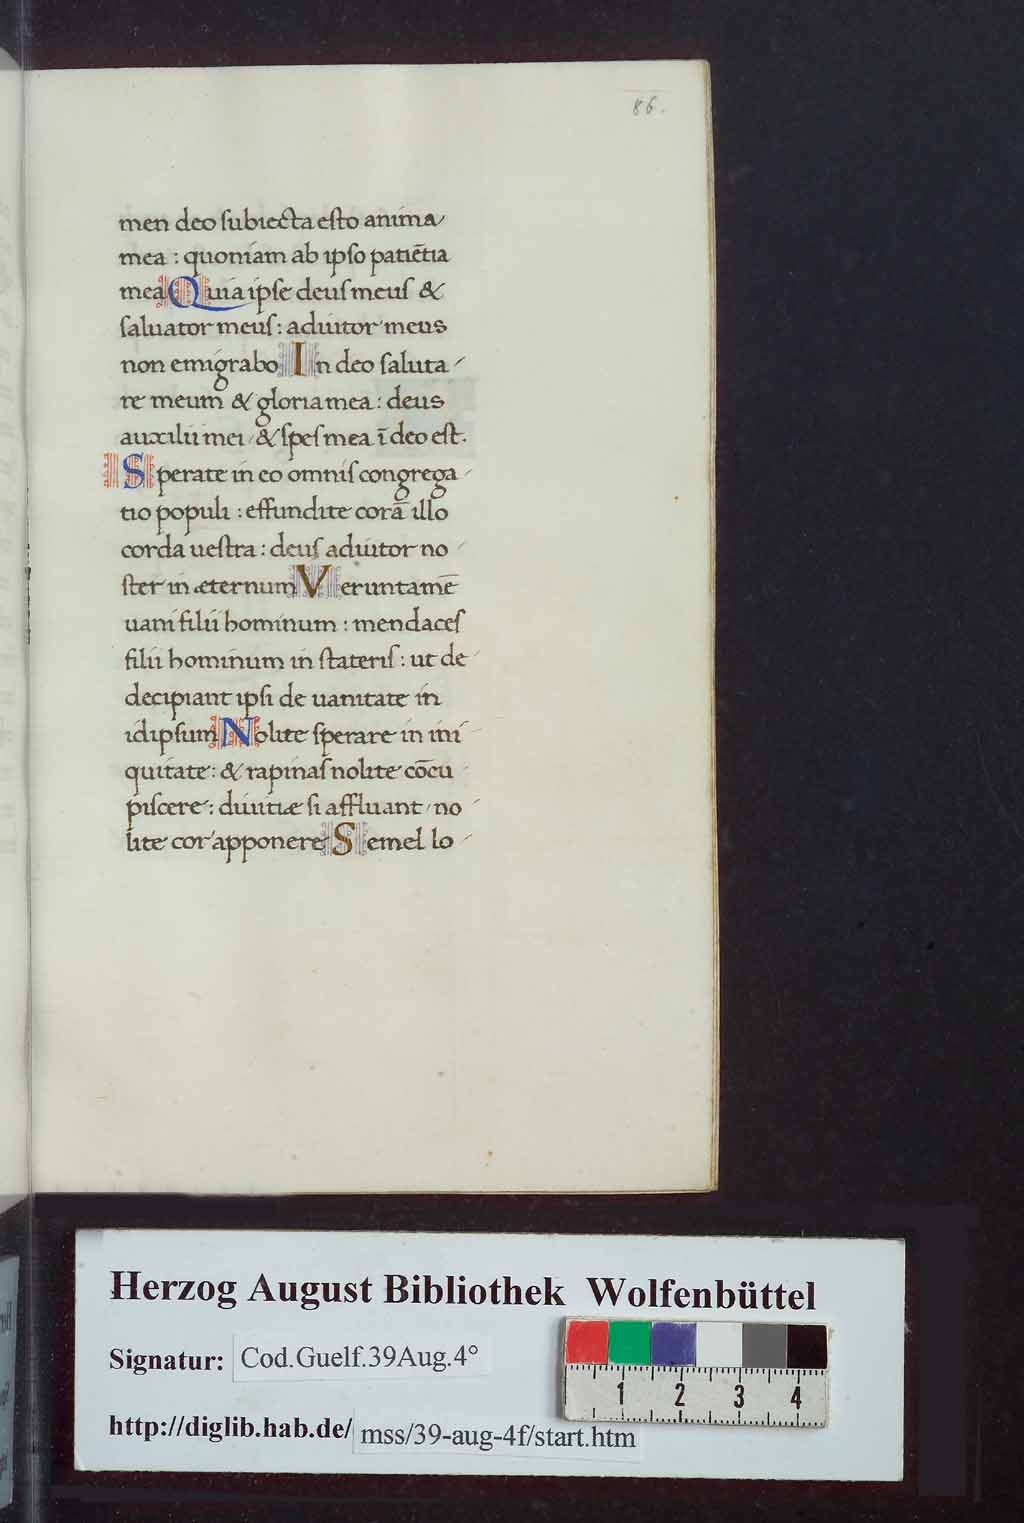 86.
men deo ſubiecta eſto anima
mea : quoniam ab ipſo patiētia
mea Quia ipſe deuſ meuſ &
ſaluator meuſ : adiutor meus
non emigrabo In deo ſaluta
re meum & gloria mea : deus
auxilii mei & ſpeſ mea ī deo eſt.
Sperate in eo omniſ congrega
tio populi : effundite corā illo
corda ueſtra : deuſ adiutor no
ſter in æternum Veruntamē
uani filii hominum : mendaceſ
filii hominum in ſtateriſ : ut de
decipiant ipſi de uanitate in
idipſum Nolite ſperare in ini
quitate : & rapinaſ nolite cōcu
piſcere : diuitiæ ſi affluant no
lite cor apponere Semel lo
Herzog August Bibliothek Wolfenbüttel
Signatur: Cod.Guelf.39Aug.4°
1 2 3 4
http://diglib.hab.de/ mss/39-aug-4f/start.htm